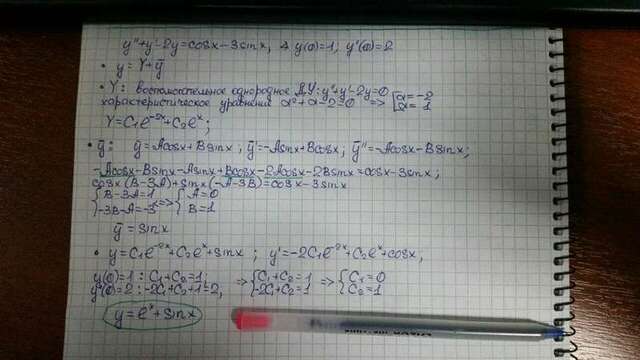 y''+y'-2y=cosx-3sinx, y(0)=1; y'(0)=2
• y=Y+ȳ
• Y: вспомогательное однородное Д.У: y''+y'-2y=0
характеристическое уравнение α²+α-2=0 => [α=-2
α=1
Y=C₁e^-2x+C₂e^x;
• ȳ: ȳ=Acosx+Bsinx; ȳ'=-Asinx+Bcosx; ȳ''=-Acosx-Bsinx;
-Acosx-Bsinx-Asinx+Bcosx-2Acosx-2Bsinx=cosx-3sinx;
cosx(B-3A)+sinx(-A-3B)=cosx-3sinx
{B-3A=1 <=> {A=0
{-3B-A=-3 {B=1
ȳ=sinx
• y=C₁e^-2x+C₂e^x+sinx; y'=-2C₁e^-2x+C₂e^x+cosx,
y(0)=1: C₁+C₂=1; => {C₁+C₂=1 => {C₁=0
y'(0)=2: -2C₁+C₂+1=2, {-2C₁+C₂=1 {C₂=1
y=e^x+sinx